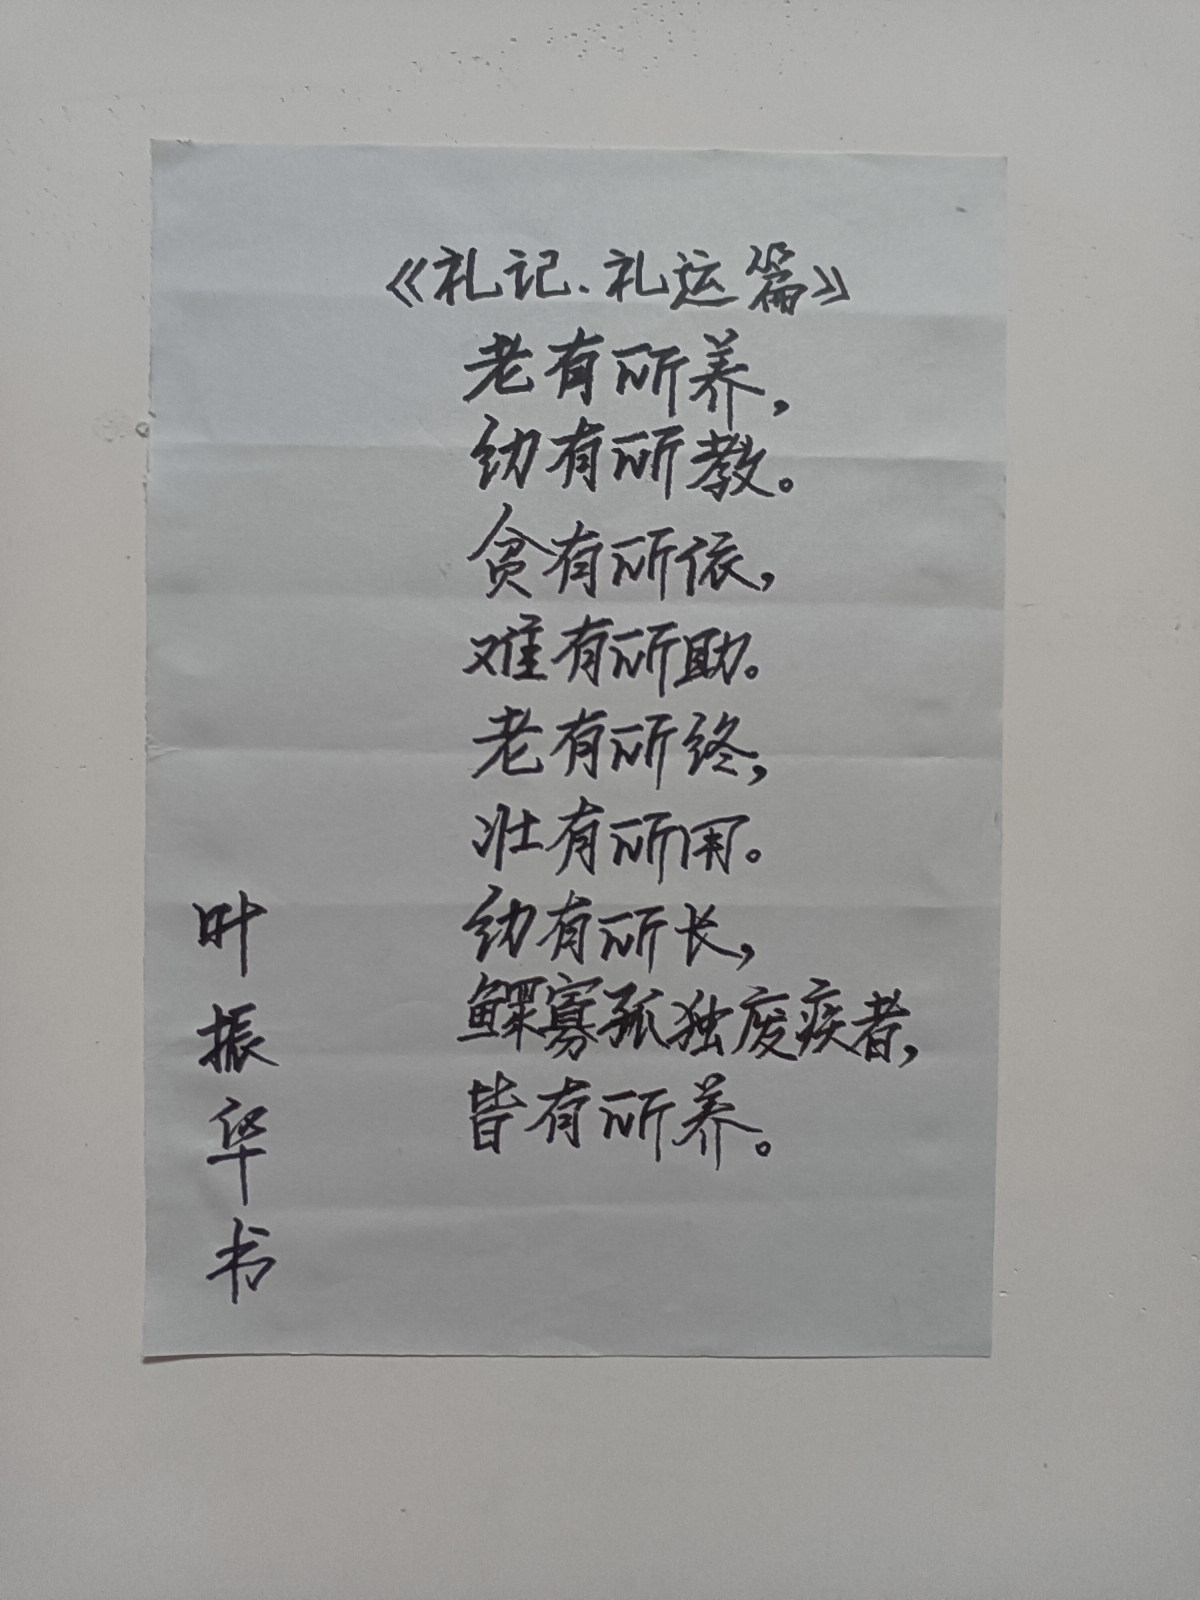 《礼记·礼运篇》
老有所养，
幼有所教。
贫有所依，
难有所助。
老有所终，
壮有所用。
幼有所长，
鳏寡孤独废疾者，
皆有所养。
叶振华书